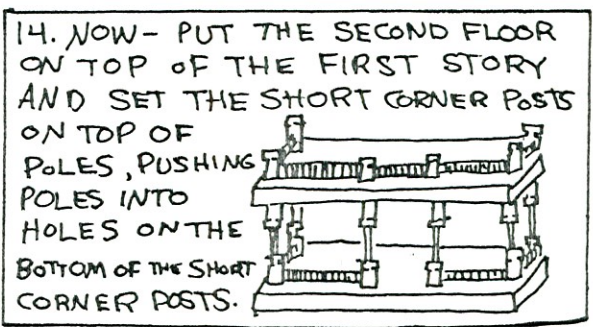 14. NOW- PUT THE SECOND FLOOR
ON TOP OF THE FIRST STORY
AND SET THE SHORT CORNER POSTS
ON TOP OF
POLES, PUSHING
POLES INTO
HOLES ON THE
BOTTOM OF THE SHORT
CORNER POSTS.